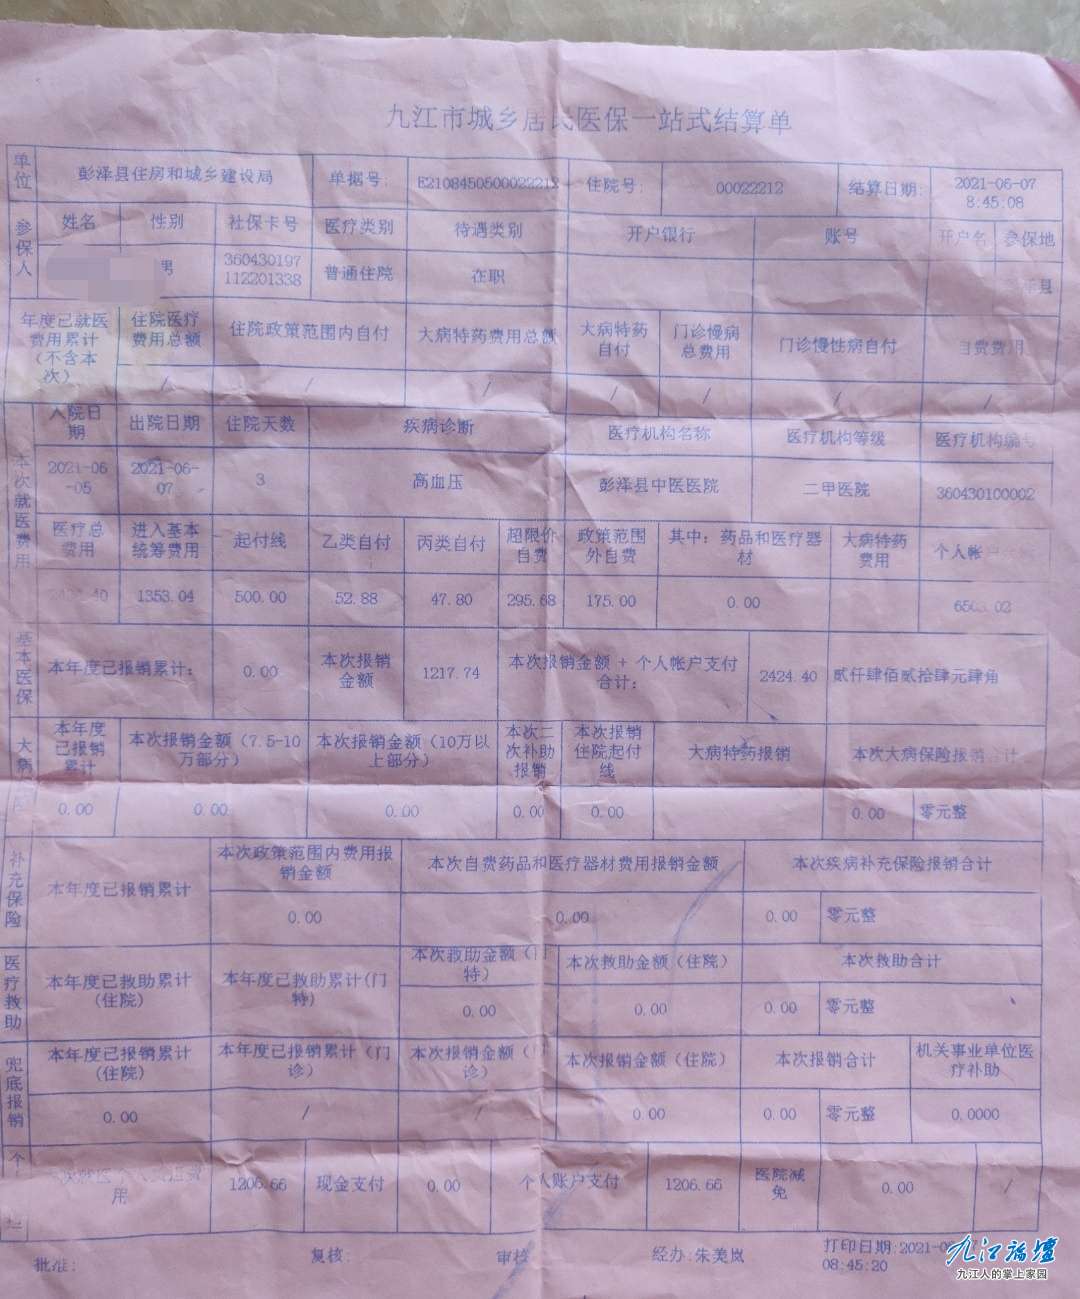 九江市城乡居民医保一站式结算单
单位 彭泽县住房和城乡建设局 单据号: E2108450500022212 住院号: 00022212 结算日期: 2021-06-07 8:45:08
参保人 姓名 性别 社保卡号 医疗类别 待遇类别 开户银行 账号 开户名 参保地
男 360430197112201338 普通住院 在职 县
年度已就医费用累计(不含本次) 住院医疗费用总额 住院政策范围内自付 大病特药费用总额 大病特药自付 门诊慢病总费用 门诊慢性病自付 自费费用
/ / / / / / /
本次就医费用 入院日期 出院日期 住院天数 疾病诊断 医疗机构名称 医疗机构等级 医疗机构编号
2021-06-05 2021-06-07 3 高血压 彭泽县中医医院 二甲医院 360430100002
医疗总费用 进入基本统筹费用 起付线 乙类自付 丙类自付 超限价自费 政策范围外自费 其中: 药品和医疗器材 大病特药费用 个人帐
1353.04 500.00 52.88 47.80 295.68 175.00 0.00
基本医保 本年度已报销累计: 0.00 本次报销金额 1217.74 本次报销金额 + 个人帐户支付合计: 2424.40 贰仟肆佰贰拾肆元肆角
大病 本年度已报销累计 本次报销金额(7.5-10万部分) 本次报销金额(10万以上部分) 本次二次补助报销 本次报销住院起付线 大病特药报销 本次大病保险报销合计
0.00 0.00 0.00 0.00 0.00 0.00 零元整
补充保险 本年度已报销累计 本次政策范围内费用报销金额 本次自费药品和医疗器材费用报销金额 本次疾病补充保险报销合计
0.00 0.00 0.00 零元整
医疗救助 本年度已救助累计(住院) 本年度已救助累计(门特) 本次救助金额(门特) 本次救助金额(住院) 本次救助合计
0.00 0.00 0.00 零元整
兜底报销 本年度已报销累计(住院) 本年度已报销累计(门诊) 本次报销金额(门诊) 本次报销金额(住院) 本次报销合计 机关事业单位医疗补助
0.00 / / 0.00 0.00 零元整 0.0000
个 用 1206.66 现金支付 0.00 个人账户支付 1206.66 医院减免 0.00 /
批准: 复核: 审核 经办: 朱美岚 打印日期:2021-0
08:45:20
九江论坛
九江人的掌上家园